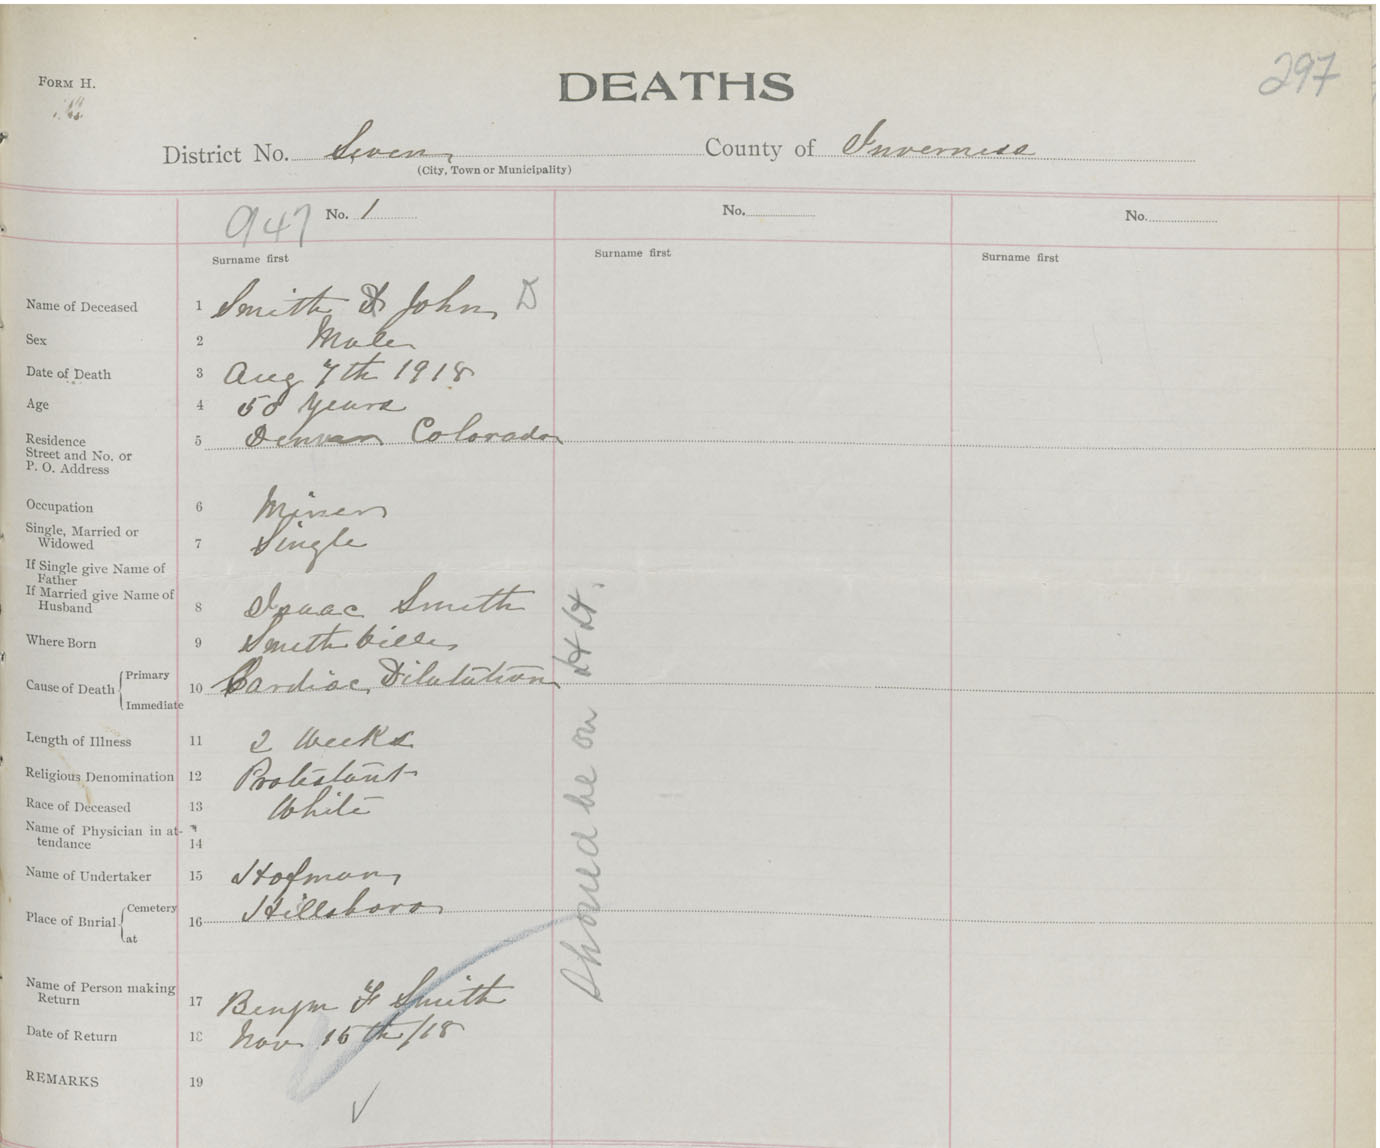 FORM H.
DEATHS
297
District No. Seven County of Inverness
(City, Town or Municipality)
947 No. 1 No. No.
Surname first Surname first Surname first
Name of Deceased 1 Smith D John D
Sex 2 Male
Date of Death 3 Aug 7th 1918
Age 4 50 Years
Residence 5 Denver Colorado
Street and No. or
P. O. Address
Occupation 6 Miner
Single, Married or
Widowed 7 Single
If Single give Name of
Father
If Married give Name of
Husband 8 Isaac Smith
Where Born 9 Smithville
Cause of Death { Primary
10 Cardiac Dilatation
Immediate
Length of Illness 11 2 Weeks
Religious Denomination 12 Protestant
Race of Deceased 13 White
Name of Physician in at-
tendance 14
Name of Undertaker 15 Hofman
Place of Burial { Cemetery
16 Hillsboro
at
Name of Person making
Return 17 Benjm F Smith
Date of Return 18 Nov 15th/18
REMARKS 19
Should be on